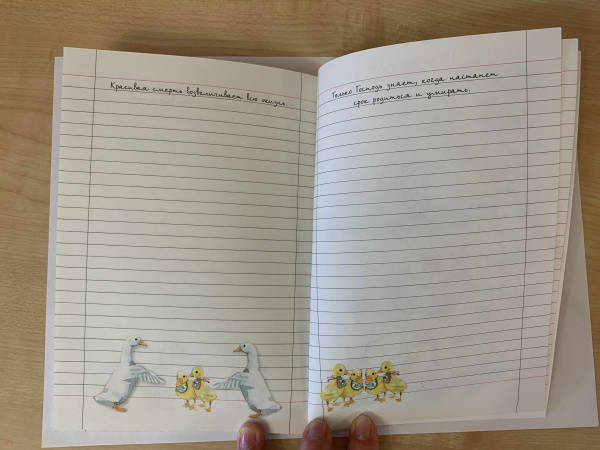 Красивая смерть возвеличивает всю жизнь.
Только Господь знает, когда настанет
срок родиться и умирать.